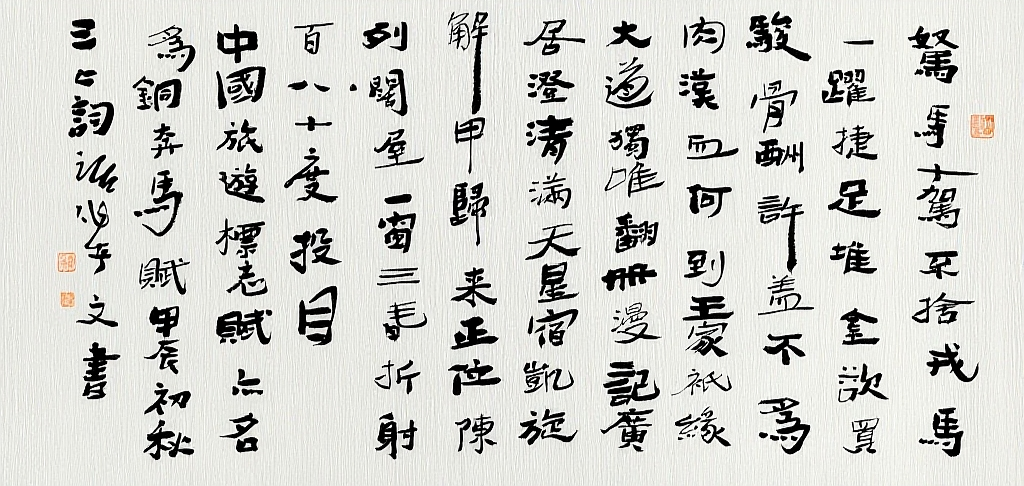 駑馬十駕不捨戎馬
一躍捷足堆金欲買
駿骨酬許盖不為
肉漢血何到王家祇緣
大道獨唯翻冊漫記廣
居澄清滿天星宿凱旋
解甲歸来正位陳
列闊屋一窗三折射
百八十度投目
中國旅遊標志賦亦名
為銅奔馬賦甲辰初秋
三上詞話文書